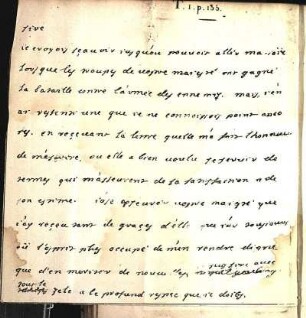 T. 1. p. 135.
Sire
ie croyois scauoir iusqu'ou pouvoit aller ma ioie
lorsque les troupes de vostre maiesté ont gagné
la bataille contre l'armée des ennemys. mais i'en
ay resenti une que ie ne connoissois point
en receuant la lettre quelle m'a fait l'honneur
de m'escrire, ou elle a bien voulu se servir de
termes qui m'asseurent de sa satisfaction et de
son estime. i'ose asseurer vostre maiesté que
i'ay receu tant de graces d'elle que i'ay tousiours
eü l'esprit plus occupé de m'en rendre digne
que d'en meriter de nouvelles
zele et le profond respec que ie doits,